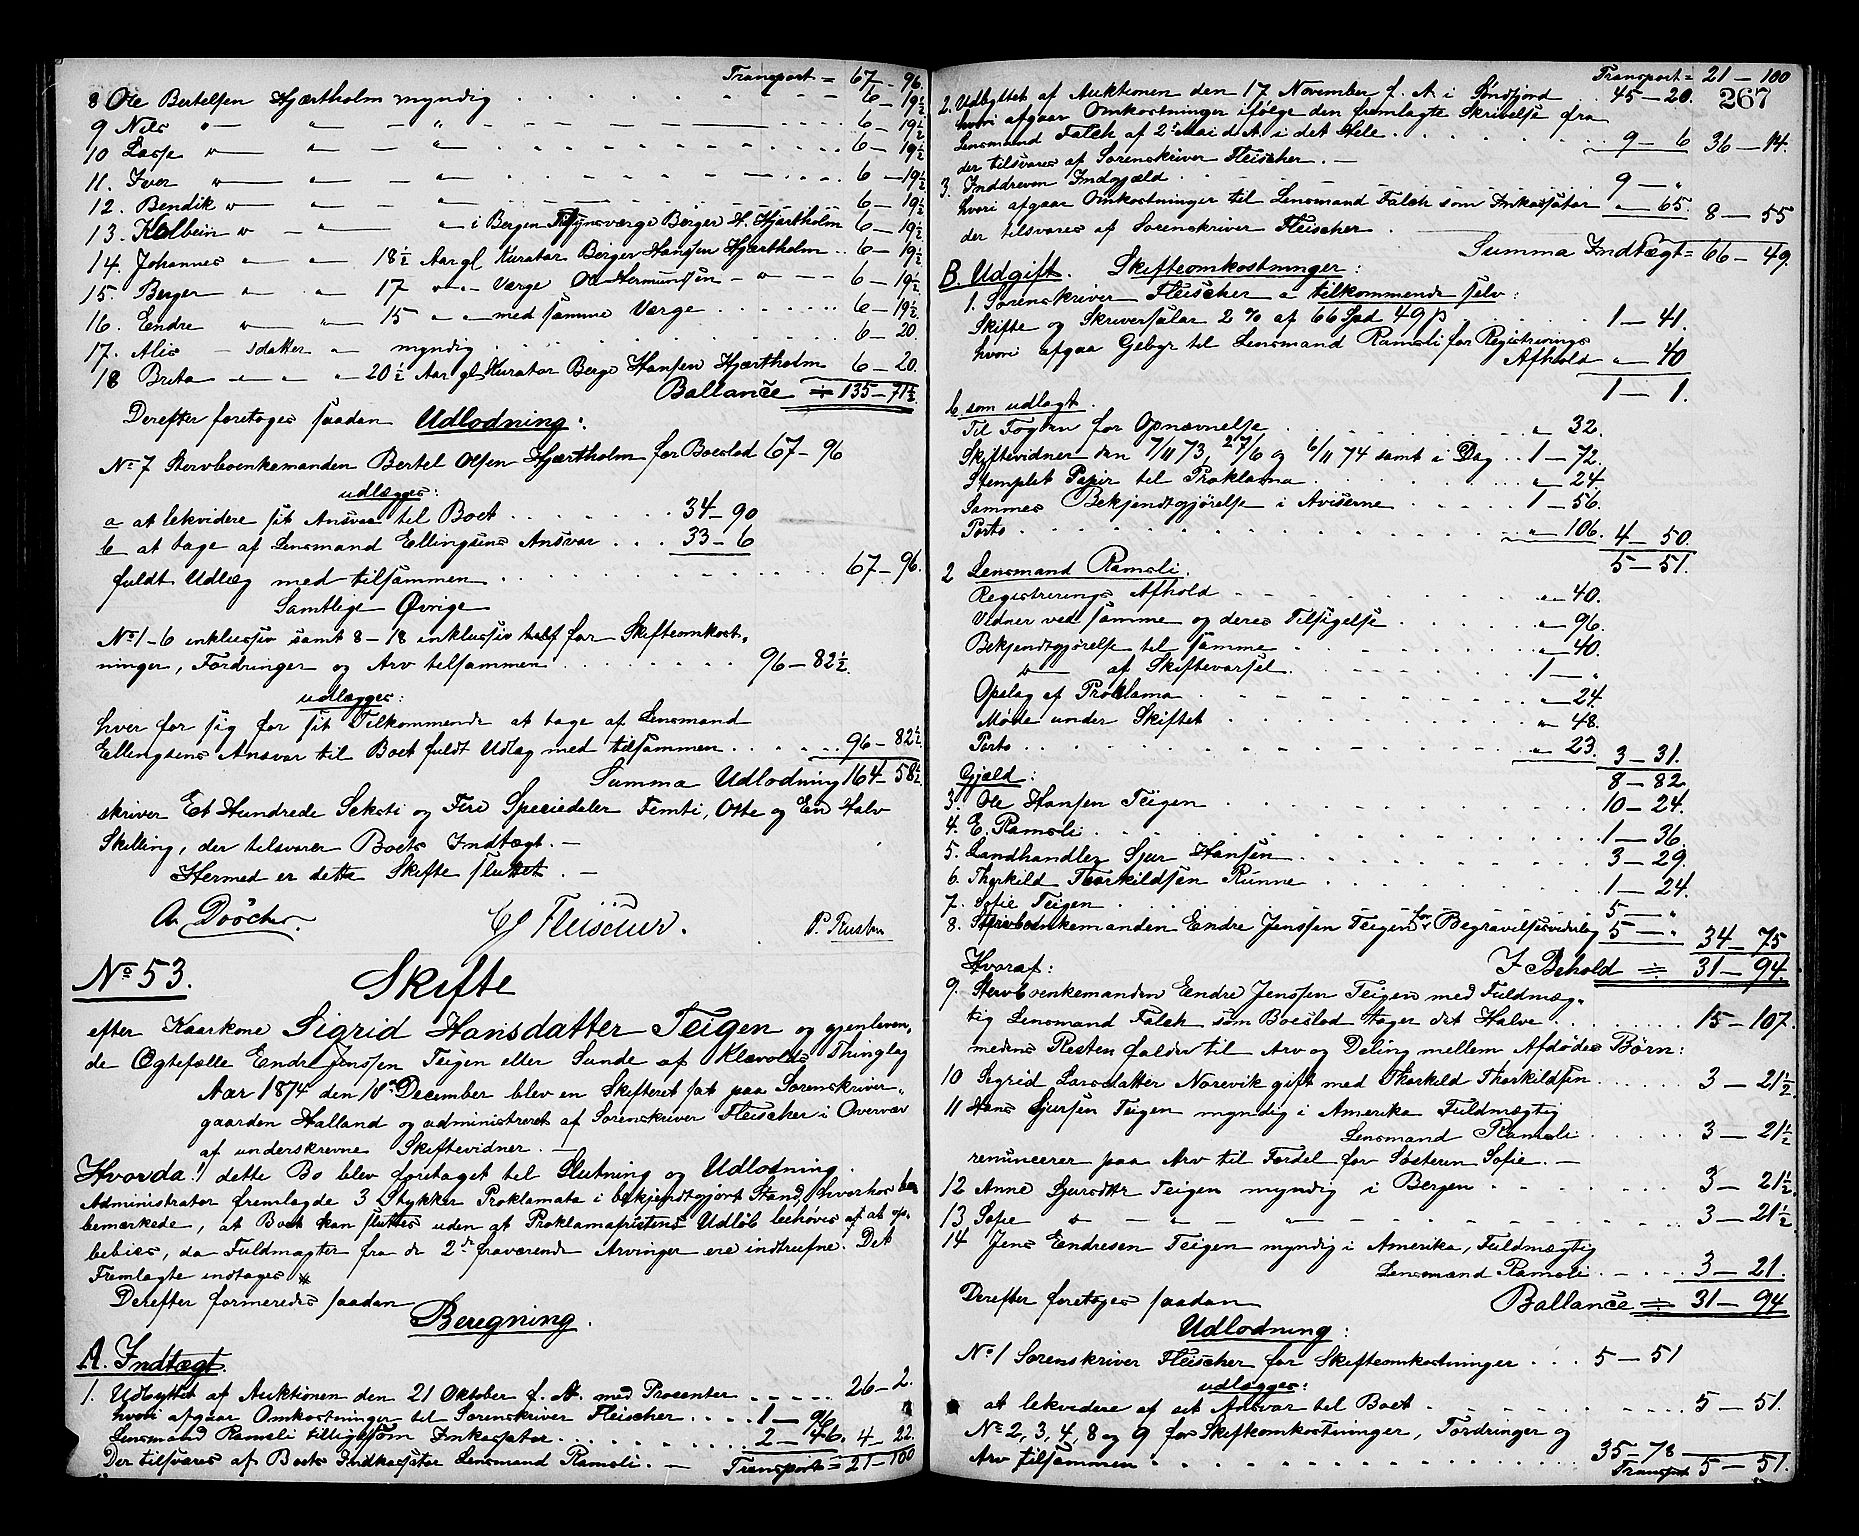 Transport = 67 – 96.
8 Ole Bertelsen Hjærtholm myndig . . . . . 6 – 19½
9 Nils „ — „ — „ — . . . 6 – 19½
10 Lasse „ — „ — „ . . . . 6 – 19½
11. Iver „ — „ — „ . . . . 6 – 19½
12. Bendik „ — „ — „ . . . . 6 – 19½
13. Kolbein „ — „ — „ i Bergen Tilsynsværge Berger H. Hjærtholm 6 – 19½
14. Johannes „ — „ 18½ Aar gl Kurator Berger Hansen Hjærtholm . . 6 – 19½
15. Berger „ — „ 17 „ „ Værge Ole Hermundsen – „ – . . 6 – 19½
16. Endre „ — „ 15 „ „ med samme Værge . . . . . 6 – 19½
17. Alis – sdatter „ myndig . . . . . . 6 – 20.
18 Brita „ — „ „ 20½ Aar gl Kurator Berge Hansen Hjærtholm 6 – 20.
Ballance ÷ 135 – 71½
Derefter foretoges saadan Udlodning:
No 7 Stervboenkemanden Bertel Olsen Hjærtholm for Boeslod 67 – 96
udlægges:
a at lekvidere sit Ansvar til Boet . . . . . . 34 – 90
b at tage af Lensmand Ellingsens Ansvar . . . 33 – 6
fuldt Udlæg med tilsammen . . . . . . . . 67 – 96.
Samtlige Øvrige
No 1 – 6 inklusiv samt 8 – 18 inklusiv for Skifteomkost-
ninger, Fordringer og Arv tilsammen . . . . . . . 96 – 82½.
udlægges:
hver for sig for sit Tilkommende at tage af Lensmand
Ellingsens Ansvar til Boet fuldt Udlæg med tilsammen . . . . 96 – 82½
Summa Udlodning 164 – 58½
skriver Et Hundrede Seksti og Fire Speciedaler Femti, Otte og En Halv
Skilling, der tilsvarer Boets Indtægt. –
Hermed er dette Skifte sluttet. –
C Fleischer.
P. Rusten
No 53. Skifte
efter Kaarkone Sigrid Hansdatter Teigen og gjenleven-
de Ægtefælle Endre Jenssen Teigen eller Sande af Klævolds Thinglag
Aar 1874 den 10de December blev en Skifteret sat paa Sorenskriver-
gaarden Halland og administreret af Sorenskriver Fleischer i Overvær
af underskrevne Skiftevidner. –
Hvorda! dette Bo blev foretaget til Slutning og Udlodning.
Administrator fremlagde 3 Stykker Proklamata i bekjendtgjort Stand, hvorhos han
bemærkede, at Boet kan sluttes uden at Proklamafristens Udløb behøves at op-
bebies, da Fuldmagter fra de 2de fraværende Arvinger ere indtrufne. Det
Fremlagte indtages
Derefter formeredes saadan
Beregning.
A. Indtægt.
1. Udbyttet af Auktionen den 21 Oktober f. A. med Procenter . . . . . 26 – 2.
hvori afgaar Omkostninger til Sorenskriver Fleischer . . . . 1 – 96
Lensmand Ramsli tilligesom Inkassator . . . . . . . 2 – 46. 4 – 22.
Der tilsvares af Boets Indkassator Lensmand Ramsli. – Transport = 21 – 100
267
Transport = 21 – 100
2. Udbyttet af Auktionen den 17 November f. A. i Søndfjord . . 45 – 20.
hvori afgaar Omkostninger ifølge den fremlagte Skrivelse fra
Lensmand Falch af 2den Mai d. A. i det Hele . . . . . . . 9 – 6 36 – 14.
der tilsvares af Sorenskriver Fleischer. –
3. Inddreven Indgjæld . . . . . . . . . 9 – „
hvori afgaar Omkostninger til Lensmand Falch som Inkassator „ – 65. 8 – 55
der tilsvares af Sorenskriver Fleischer . –
Summa Indtægt = 66 – 49.
B. Udgift. Skifteomkostninger:
1. Sorenskriver Fleischer a tilkommende selv:
Skifte og Skriversalær 2 % af 66 Spd 49 β . . . . . . 1 – 41.
hvori afgaa Gebyr til Lensmand Ramsli for Registrerings
Afhold „ – 40
1 – 1.
b som udlagt.
Til Fogden for Opnævnelse . . . . . . . „ 32.
Skiftevidner den 7/11 73, 27/6 og 6/11 74 samt i Dag . . 1 – 72.
Stemplet Papir til Proklama . . . . . . . „ – 24.
Sammes Bekjendtgjørelse i Aviserne . . . . . 1 – 56.
Porto . . . . . . . . . . . „ – 106. 4 – 50.
5 – 51.
2 Lensmand Ramsli.
Registrerings Afhold . . . . . . . . „ – 40.
Vidner ved samme og deres Tilsigelse . . . . . . „ – 96.
Bekjendtgjørelse til samme . . . . . . . „ – 40.
„ — af Skiftevarsel . . . . . . . 1 – „
Opslag af Proklama . . . . . . . . „ – 24.
Møde under Skiftet . . . . . . . . „ – 48.
Porto . . . . . . . . . . „ – 23. 3 – 31.
8 – 82
Gjæld:
3. Ole Hansen Teigen . . . . . . . . . 10 – 24.
4. E. Ramsli . . . . . . . . . . 1 – 36.
5. Landhandler Sjur Hansen . . . . . . . 3 – 29.
6. Thorkild Thorkildsen Runne . . . . . . . 1 – 24.
7. Sofie Teigen . . . . . . . . . 5 – „
8. Stervboenkemanden Endre Jenssen Teigen for Begravelsesvederlag 5 – „ 34 – 75
I Behold ÷ 31 – 94.
Hvoraf:
9. Stervboenkemanden Endre Jenssen Teigen med Fuldmæg-
tig Lensmand Falch som Boeslod tager det Halve . . . . . . 15 – 107.
medens Resten falder til Arv og Deling mellem Afdødes Børn:
10 Sigrid Larsdatter Norevik gift med Thorkild Thorkildsen . . . . . 3 – 21½.
11 Hans Sjursen Teigen myndig i Amerika Fuldmægtig
Lensmand Ramsli . . . . . . 3 – 21½
renuncerer paa Arv til Fordel for Søsteren Sofie. –
12 Anne Sjursdtr Teigen myndig i Bergen . . . . . . . 3 – 21½.
13 Sofie „ — „ — „ . . . . . . . 3 – 21½.
14 Jens Endresen Teigen myndig i Amerika, Fuldmægtig
Lensmand Ramsli . . . . 3 – 21.
Derefter foretoges saadan Ballance ÷ 31 – 94
Udlodning:
No 1 Sorenskriver Fleischer for Skifteomkostninger . . . 5 – 51
udlægges:
at lekvidere af sit Ansvar til Boet . . . . . . . . 5 – 51.
No 2, 3, 4, 8 og 9 for Skifteomkostninger, Fordringer og
Arv tilsammen . . . . . . . . . . . . 35 – 78
Transport 5 – 51.